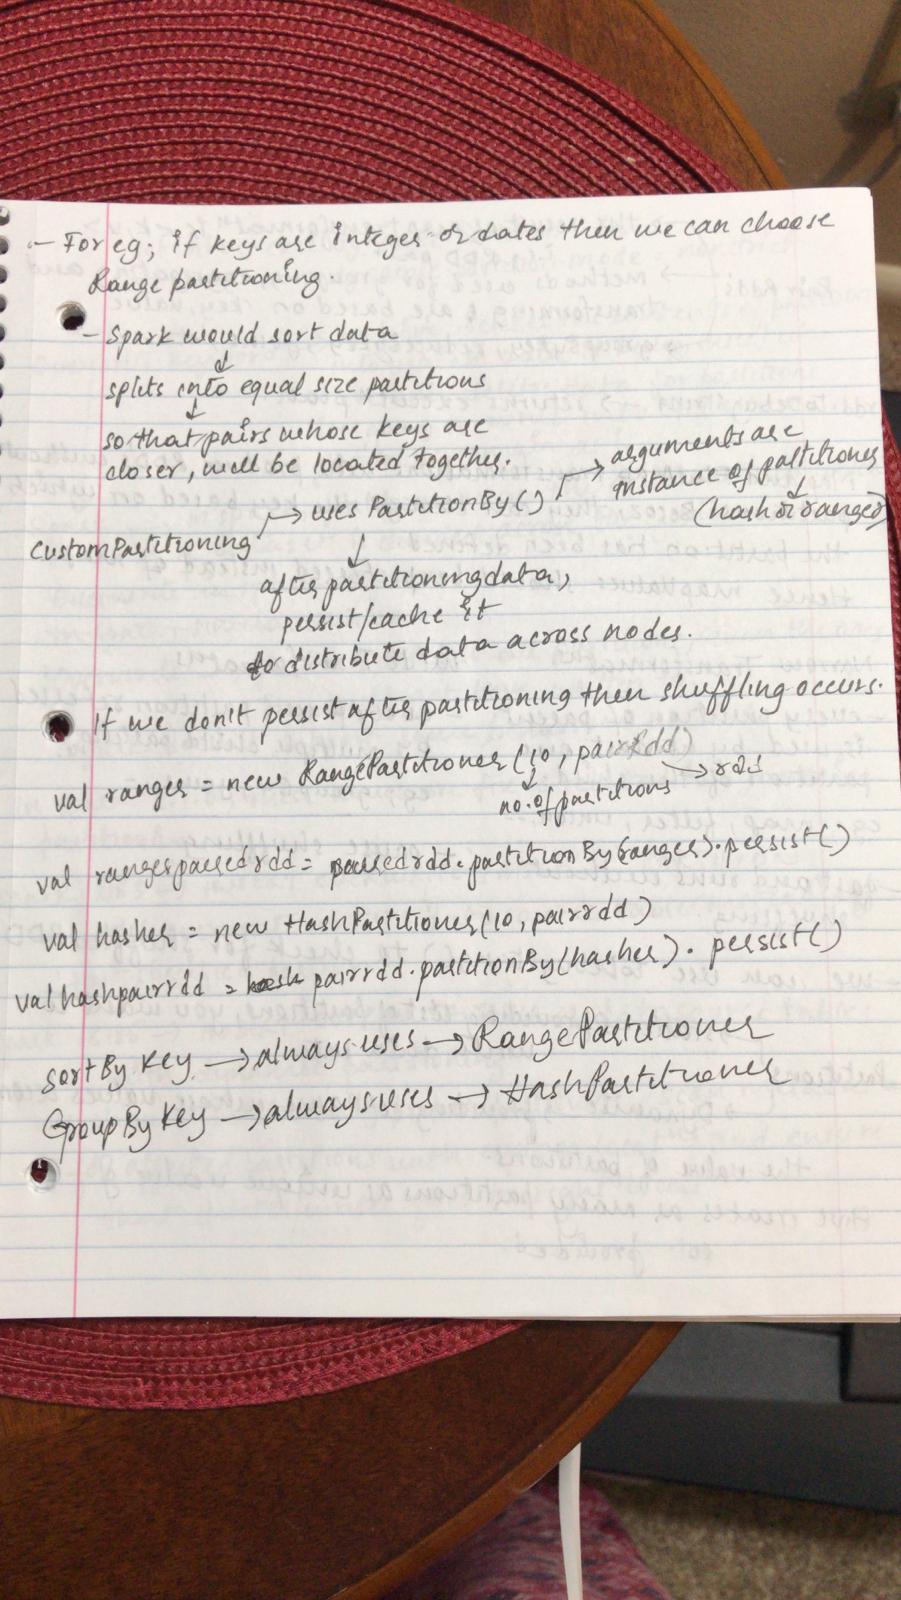 - For eg; if keys are integer or dates then we can choose
Range partitioning.
- Spark would sort data
↓
splits into equal size partitions
↓
so that pairs whose keys are
closer, will be located together.
→ arguments are
instance of partitioner
↓
(hash or ranger)
→ uses PartitionBy()
CustomPartitioning
↓
after partitioning data,
persist/cache it
to distribute data across nodes.
If we don't persist after partitioning then shuffling occurs.
val ranges = new RangePartitioner(10, pairRdd)
→ rdd
↓
no. of partitions
val rangespairedrdd = pairedrdd.partitionBy(ranges).persist()
val hasher = new HashPartitioner(10, pairrdd)
val hashpairrdd = pairrdd.partitionBy(hasher).persist()
sortBy Key → always uses → RangePartitioner
GroupBy Key → always uses → HashPartitioner